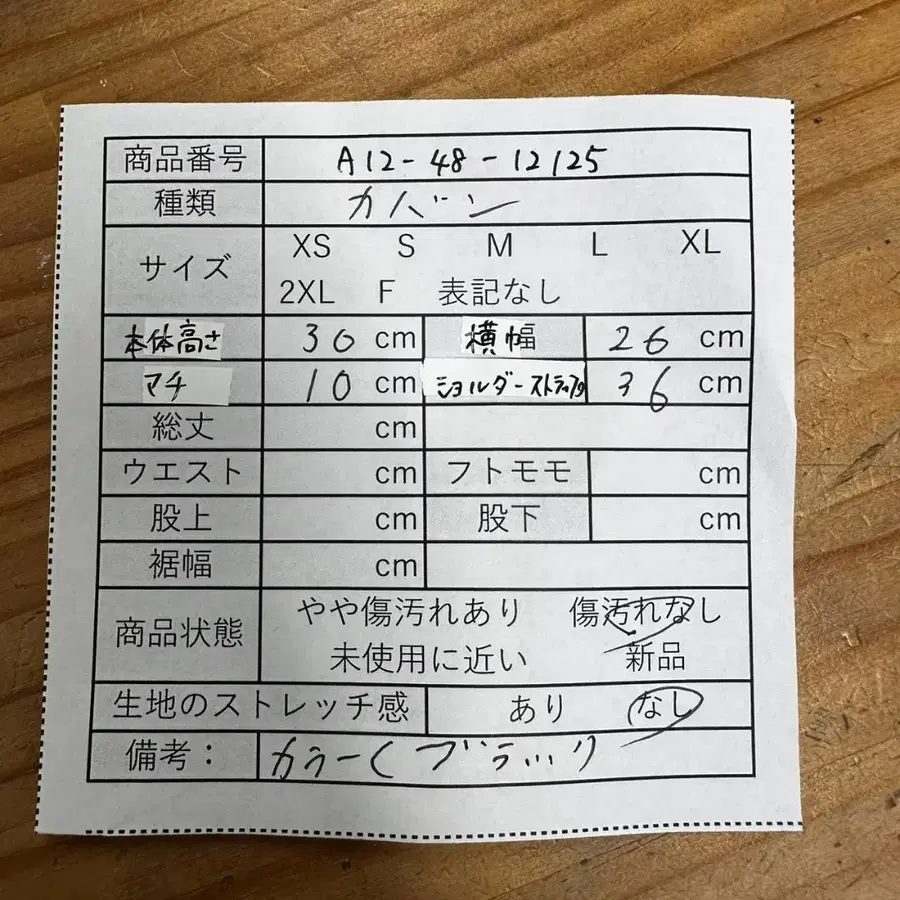 商品番号 A12-48-12125
種類 カバン
サイズ XS S M L XL
2XL F 表記なし
本体高さ 36 cm 横幅 26 cm
マチ 10 cm ショルダーストラップ 36
総丈 cm
ウエスト cm フトモモ cm
股上 cm 股下 cm
裾幅 cm
商品状態 やや傷汚れあり 傷汚れなし
未使用に近い 新品
生地のストレッチ感 あり なし
備考: カラー ブラック